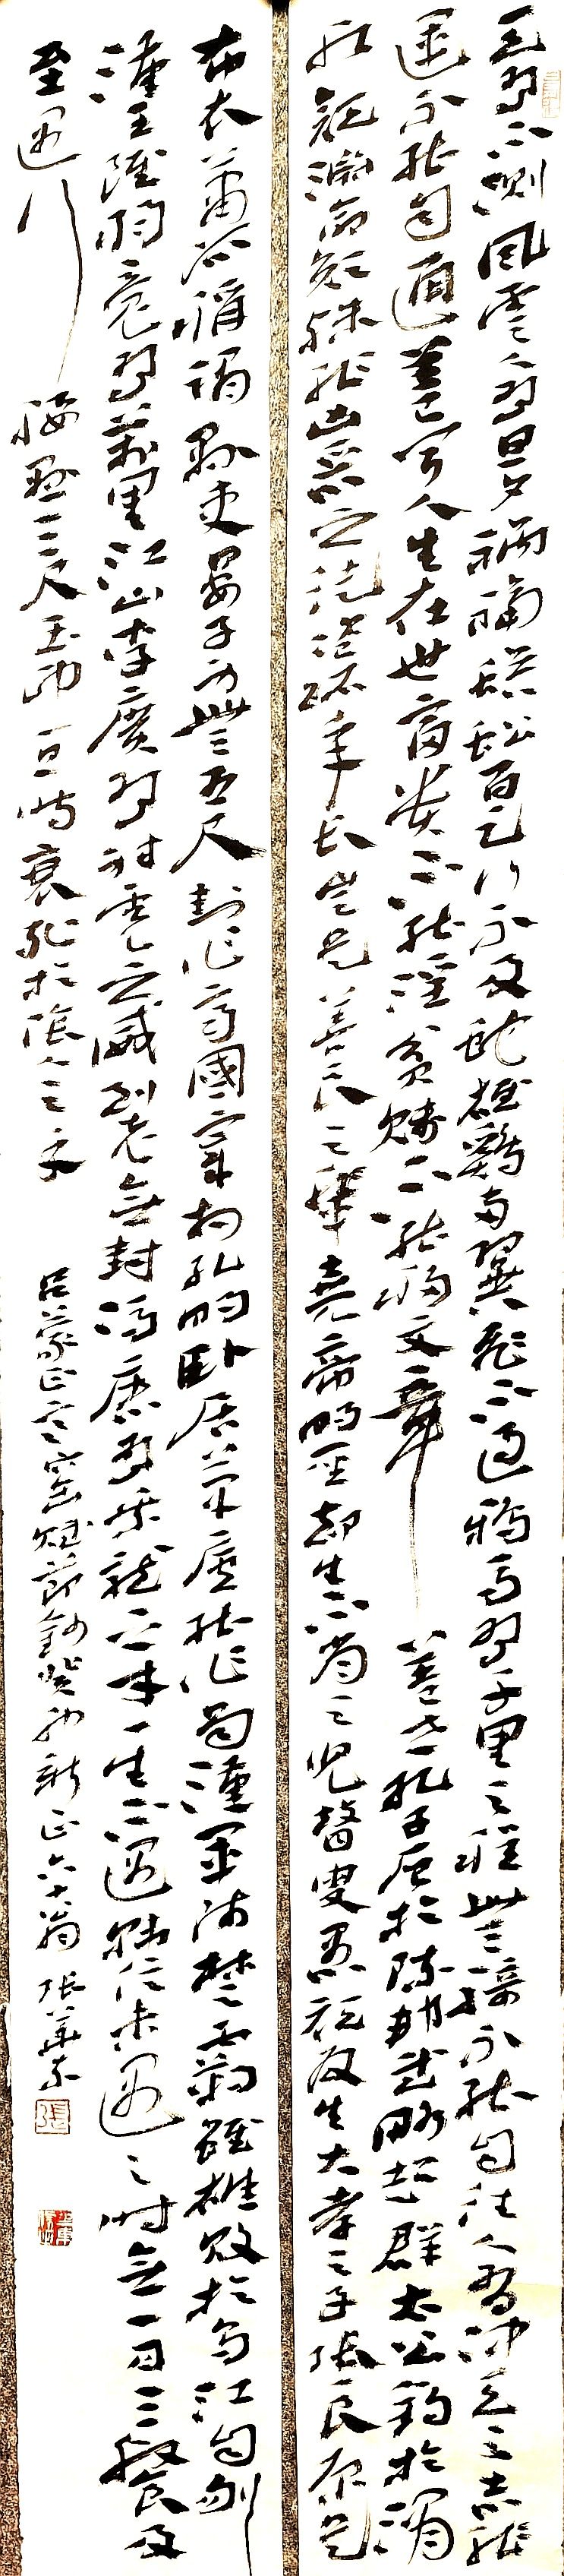 天有不測風雲人有旦夕禍福蜈蚣百足行不及蛇雄鷄兩翼飛不過鴉馬有千里之程無騎不能自往人有冲天之志非
運不能自通蓋聞人生在世富貴不能淫貧賤不能移文章蓋世孔子厄於陳邦武略超群太公釣於渭
水顔淵命短殊非凶惡之徒盗跖年長豈是善良之輩堯帝明聖却生不肖之兒瞽叟愚頑反生大孝之子張良原是
布衣蕭何稱謂縣吏晏子身無五尺封作齊國宰相孔明卧居草廬能作蜀漢軍師楚霸雖雄敗於烏江自刎
漢王雖弱竟有萬里江山李廣有射虎之威到老無封馮唐有乘龍之才一生不遇韓信未遇之時無一日三餐及
至遇行腰懸三尺玉印一旦時衰死於陰人之手
吕蒙正寒窑賦節鈔癸卯新正六十翁張華